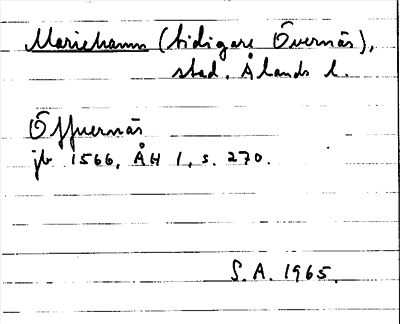 Mariehamn (tidigare Övernäs),
stad. Ålands l.
Öffuernäs
jb 1566, ÅH 1, s. 270.
S.A. 1965.